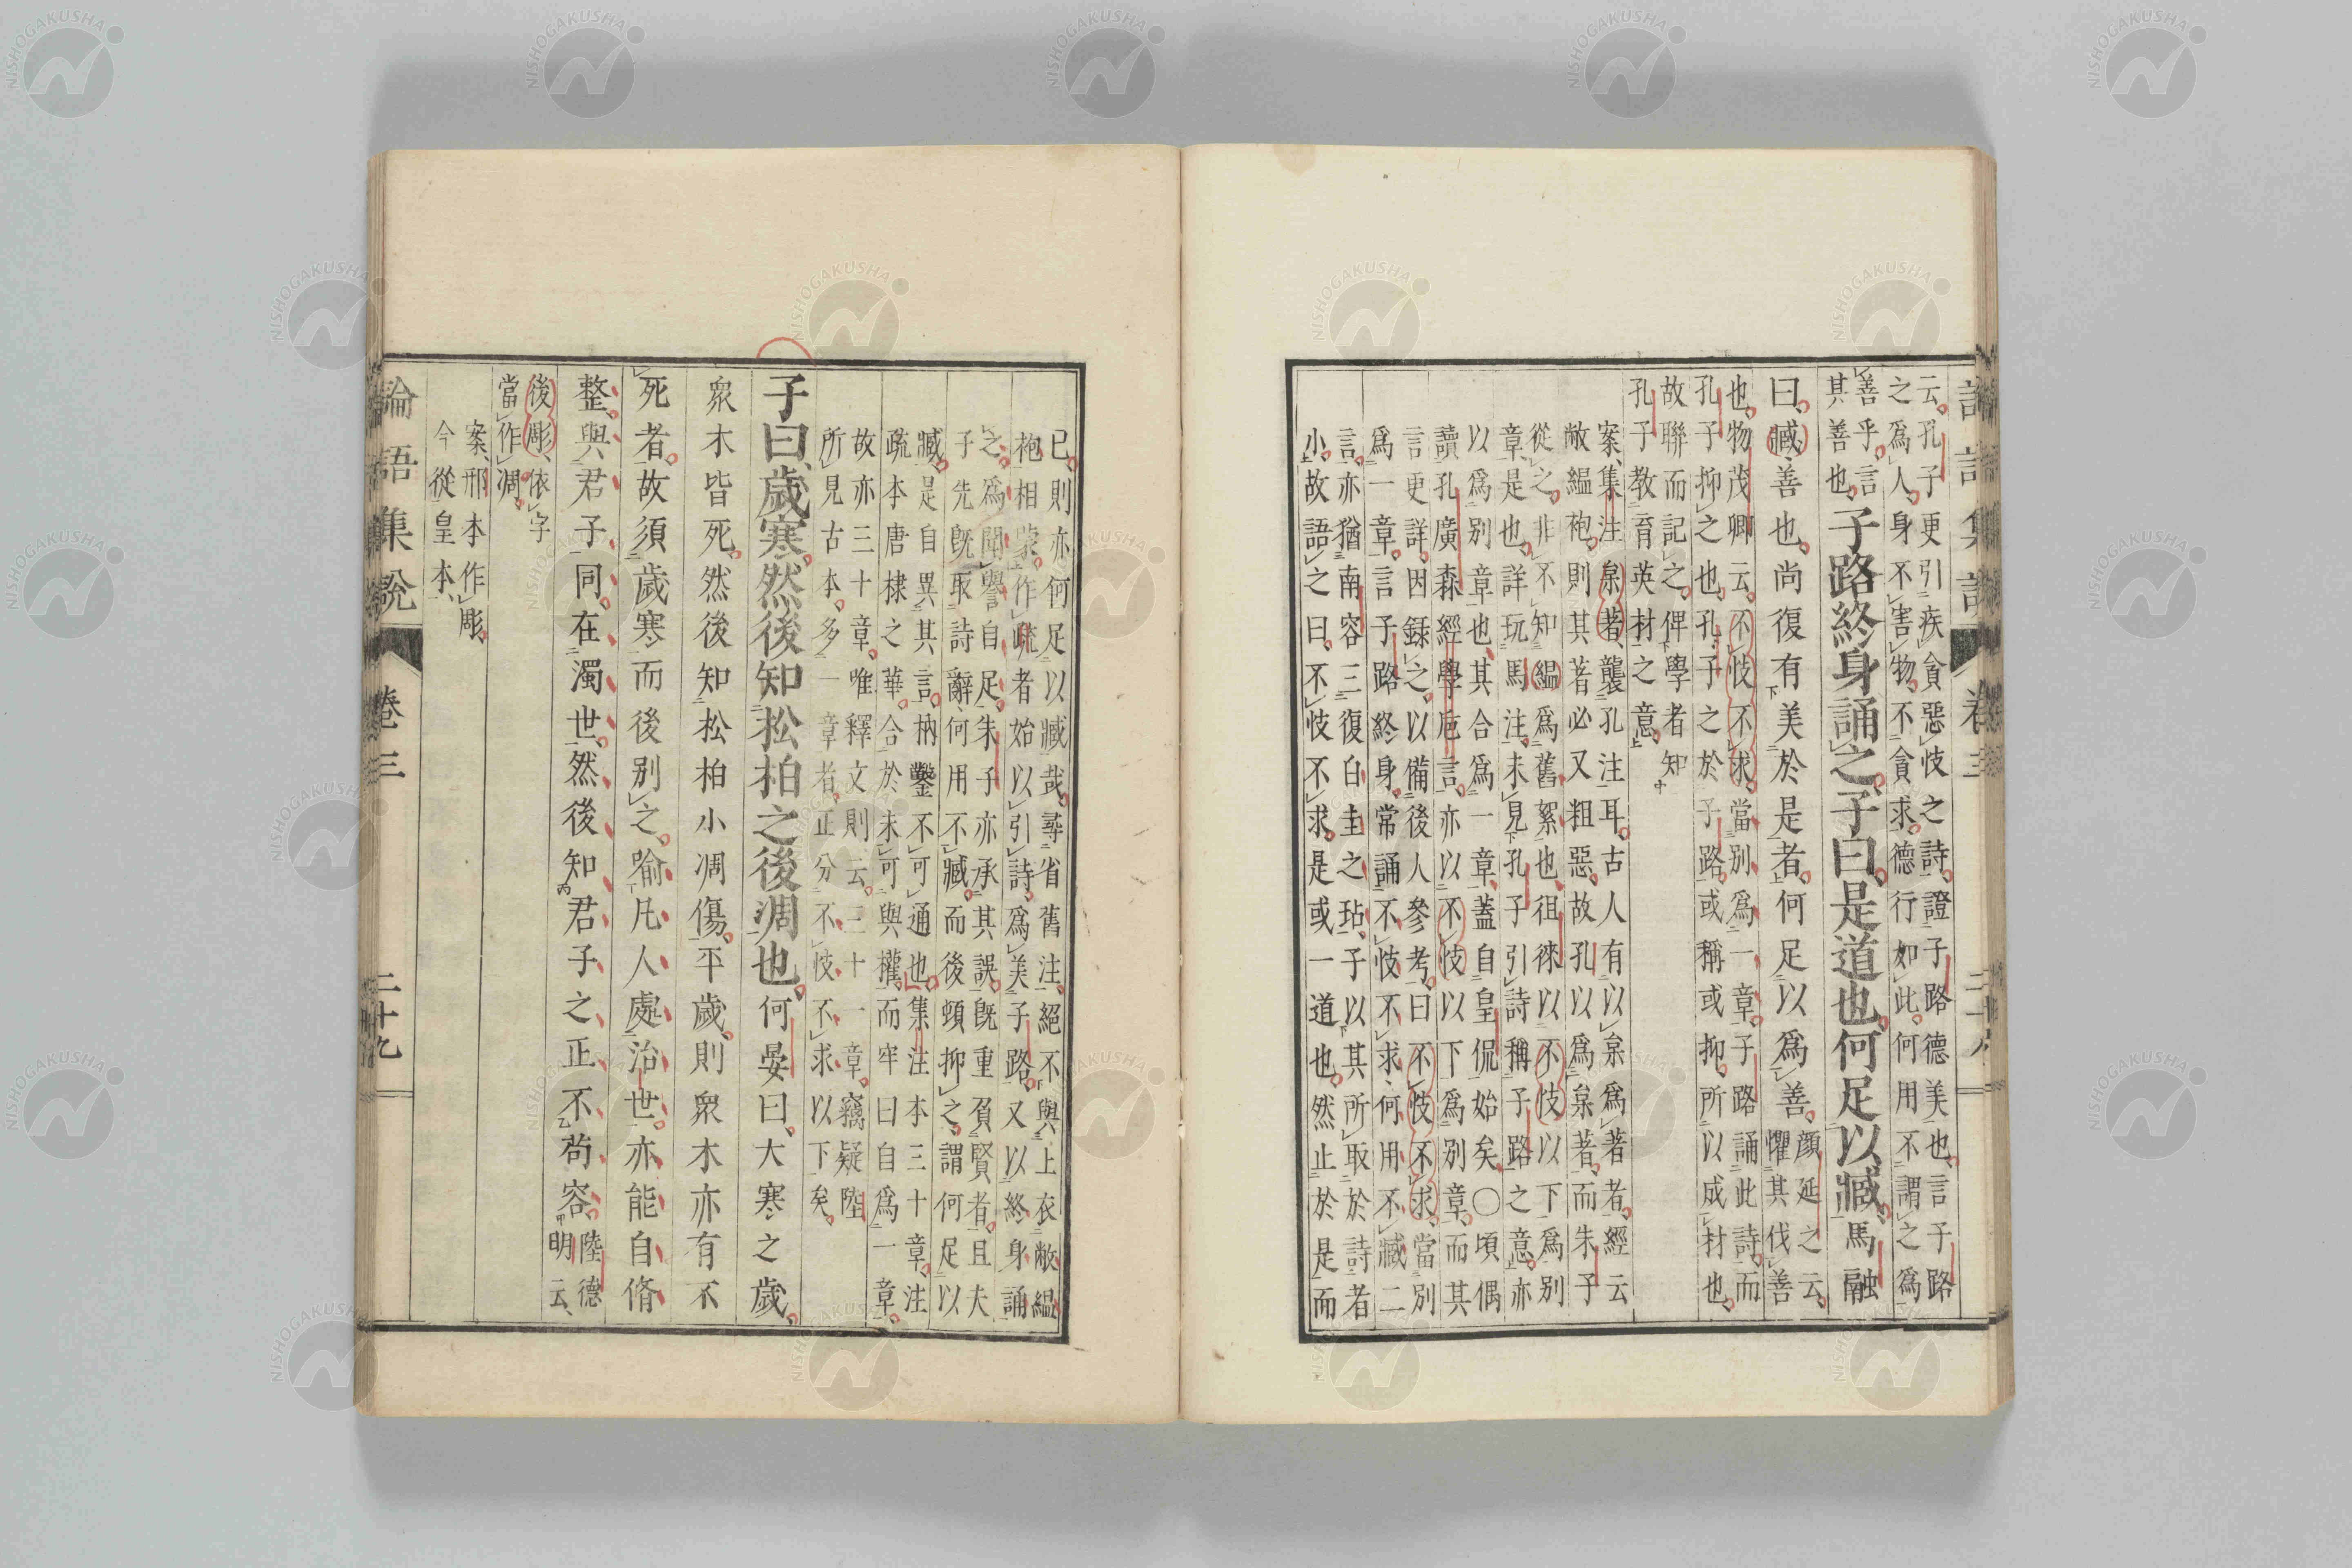 云孔子更引疾貪惡忮之詩證子路德美也言子路
之爲人身不害物不貪求德行如此何用不謂之爲
善乎言
其善也
子路終身誦之子曰是道也何足以臧馬融
曰臧善也尚復有美於是者何足以爲善
顏延之云
懼其伐善
也物茂卿云不忮不求當別爲一章子路誦此詩而
孔子抑之也孔子之於子路或稱或抑所以成材也
故聯而記之俾學者知
孔子教育英材之意
案集注枲著襲孔注耳古人有以枲爲著者經云
敝縕袍則其著必又粗惡故孔以爲枲著而朱子
從之非不知縕爲舊絮也徂徠以不忮以下爲別
章是也詳玩馬注未見孔子引詩稱子路之意亦
以爲別章也其合爲一章蓋自皇侃始矣〇頃偶
讀孔廣森經學巵言亦以不忮以下爲別章而其
言更詳因錄之以備後人參考曰不忮不求當別
爲一章言子路終身常誦不忮不求何用不臧二
言亦猶南容三復白圭之玷子以其所取於詩者
小故語之曰不忮不求是或一道也然止於是而
已則亦何足以臧哉尋省舊注絕不與上衣敝縕
袍相蒙作疏者始以引詩爲美子路又以終身誦
之爲聞譽自足朱子亦承其誤旣重負賢者且夫
子先旣取詩辭何用不臧而後頓抑之謂何足以
臧是自異其言枘鑿不可通也集注本三十章注
疏本唐棣之華合於未可與權而牢曰自爲一章
故亦三十章唯釋文則云三十一章竊疑陸
所見古本多一章者正分不忮不求以下矣
子曰歲寒然後知松柏之後凋也何晏曰大寒之歲
衆木皆死然後知松柏小凋傷平歲則衆木亦有不
死者故須歲寒而後別之喻凡人處治世亦能自脩
整與君子同在濁世然後知君子之正不苟容
陸德
明云
後彫依字
當作凋
案邢本作彫
今從皇本
論語集說 卷三 二十九